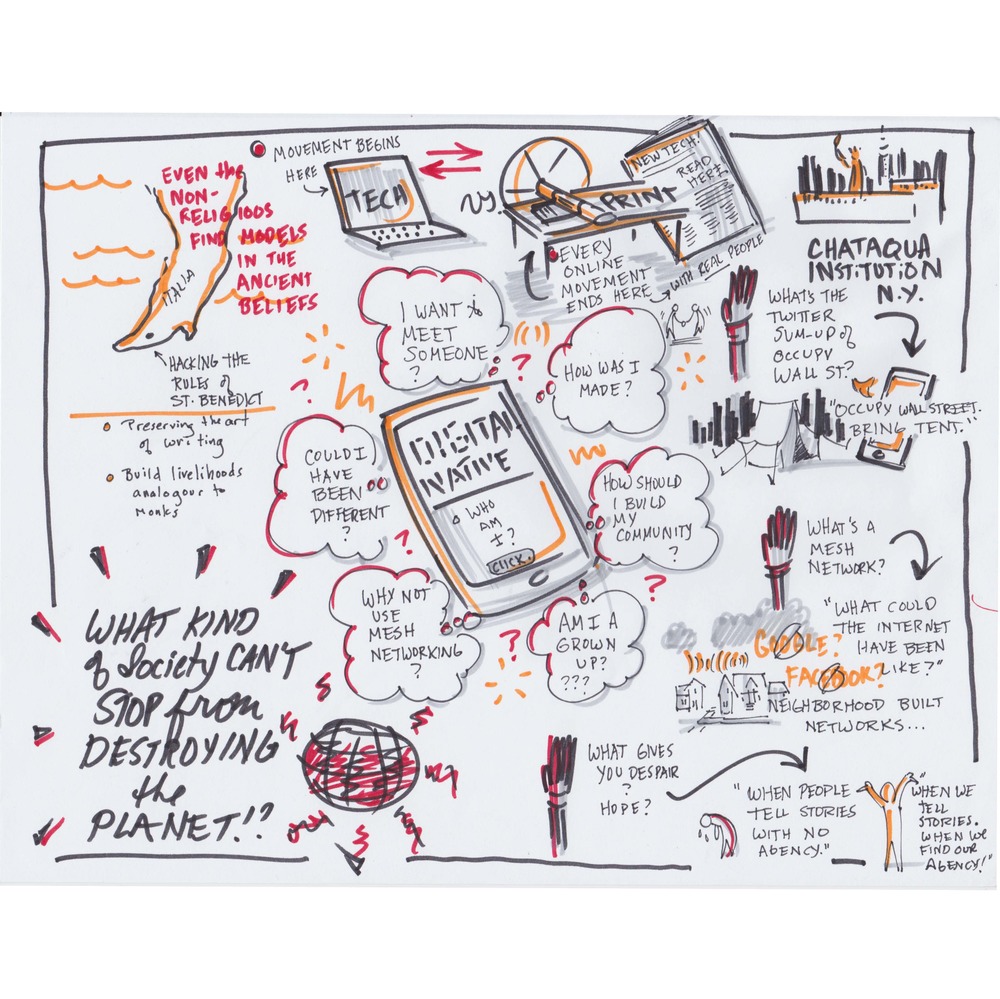 MOVEMENT BEGINS
HERE
TECH
NY
PRINT
NEW TECH!
READ
HERE
EVERY
ONLINE
MOVEMENT
ENDS HERE
WITH REAL PEOPLE
EVEN the
NON-
RELIGIOUS
FIND MODELS
IN THE
ANCIENT
BELIEFS
ITALIA
HACKING THE
RULES of
ST. BENEDICT
Preserving the art
of writing
Build livelihoods
analogour to
Monks
CHATAQUA
INSTITUTION
N.Y.
WHAT'S THE
TWITTER
SUM-UP of
OCCUPY
WALL ST?
"OCCUPY WALL STREET.
BRING TENT."
I WANT to
MEET
SOMEONE
?
HOW WAS I
MADE?
COULD I
HAVE
BEEN
DIFFERENT
?
DIGITAL
NATIVE
WHO
AM
I?
CLICK
HOW SHOULD
I BUILD
MY
COMMUNITY
?
WHY NOT
USE
MESH
NETWORKING
?
AM I A
GROWN
UP?
???
WHAT'S A
MESH
NETWORK?
"WHAT COULD
THE INTERNET
HAVE BEEN
LIKE?"
GOOGLE?
FACEBOOK?
NEIGHBORHOOD BUILT
NETWORKS...
WHAT KIND
of Society CAN'T
STOP from
DESTROYING
the
PLANET!?
WHAT GIVES
YOU DESPAIR
?
HOPE?
"WHEN PEOPLE
TELL STORIES
WITH NO
AGENCY."
"WHEN WE
TELL
STORIES.
WHEN WE
FIND OUR
AGENCY!"